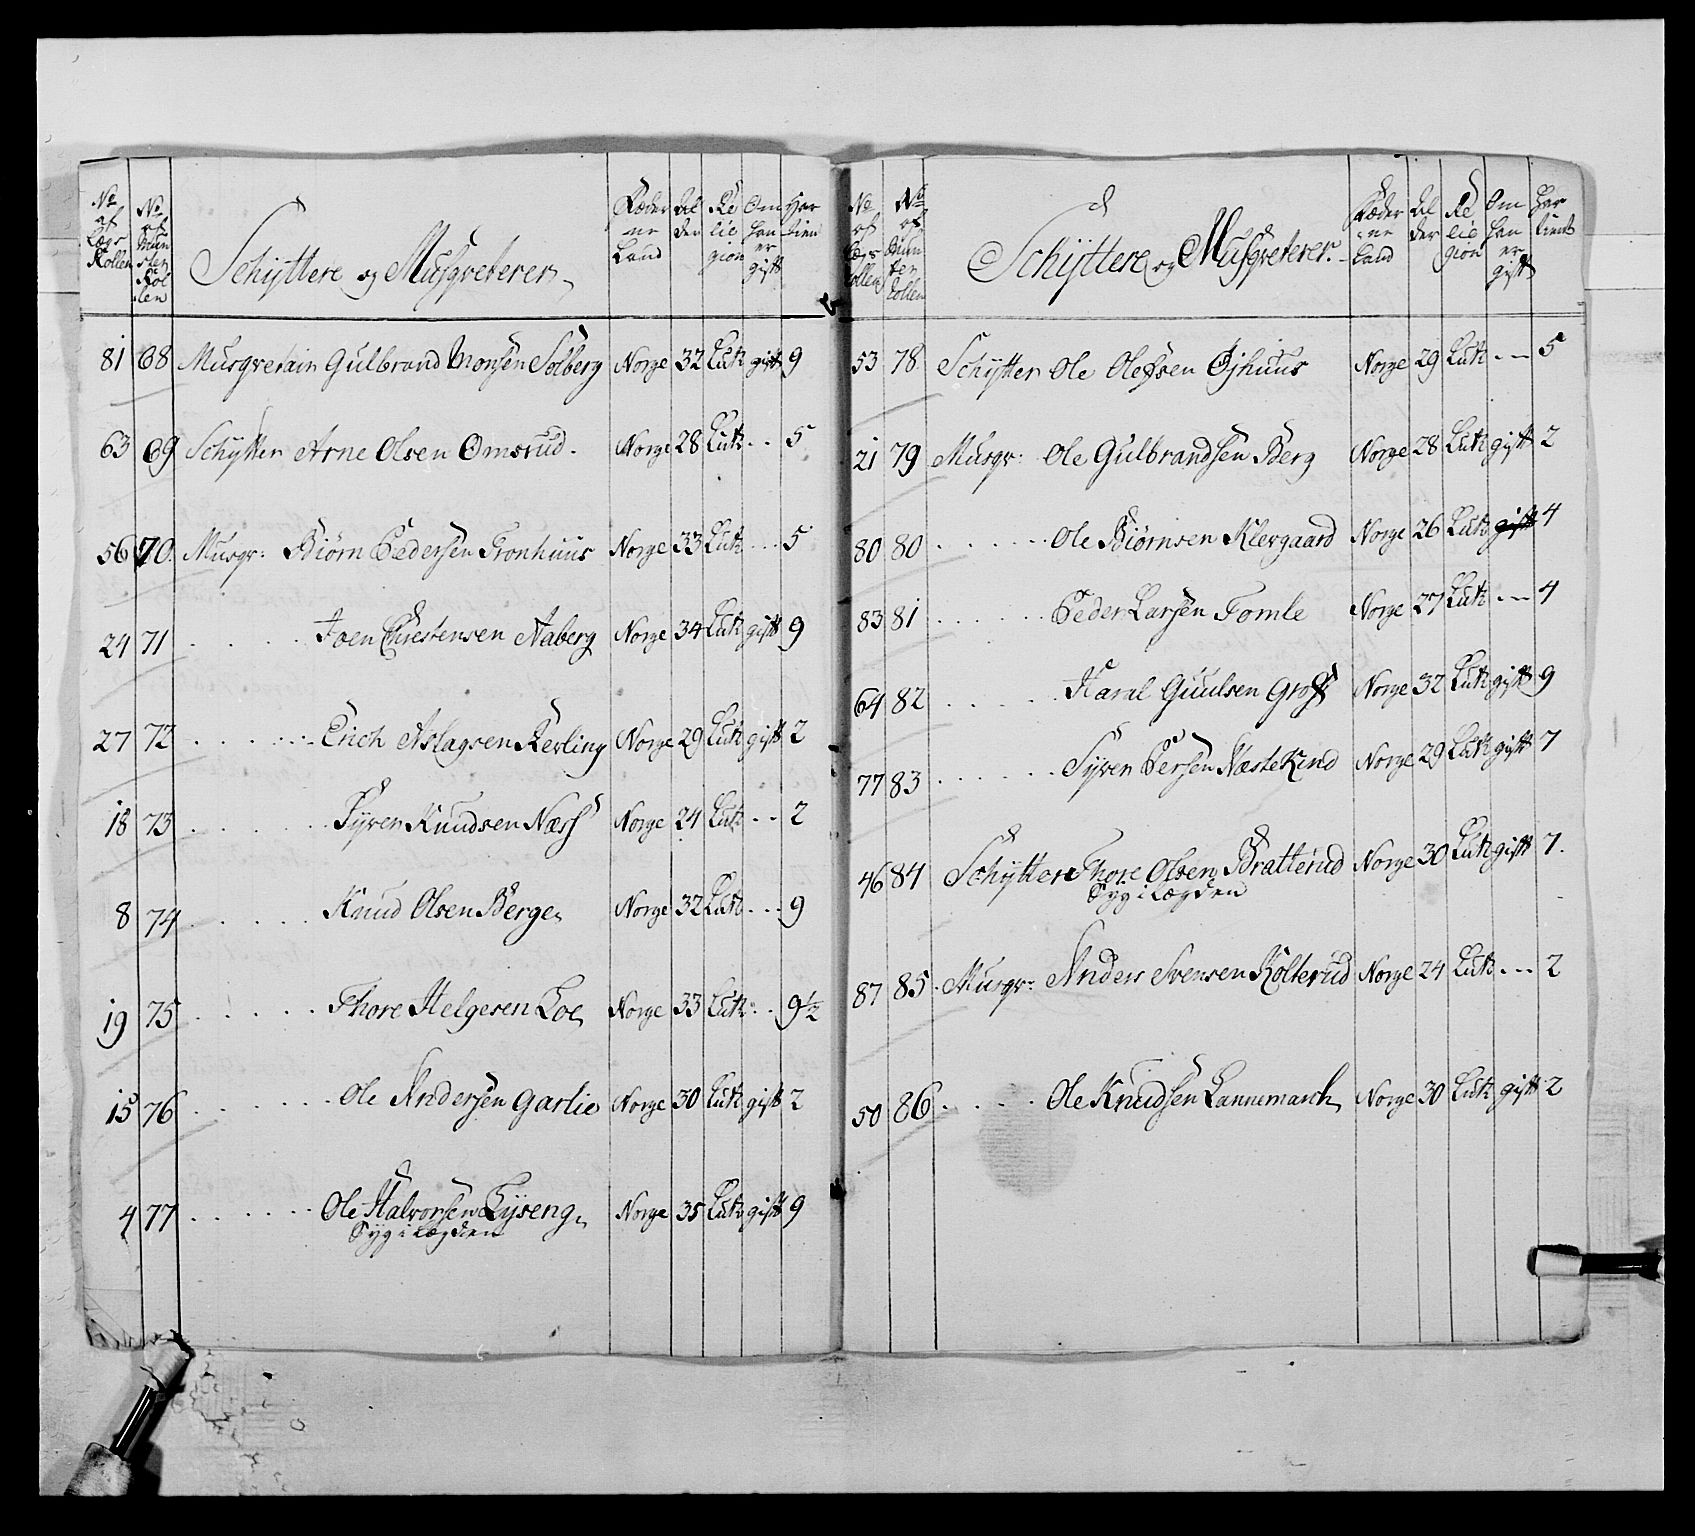 No af Lægs Rollen No af Mun ster Rol len Schÿttere og Musqveterer Fæderne Land Al der Re lie gion Om han er gift Har tient
81 68 Musqveterer Gulbrand Monsen Solberg Norge 32 Luth gift 9
63 69 Schytter Arne Olsen Omsrud Norge 28 Luth - - 5
56 70 Musqr: Biørn Pedersen Tronhuus Norge 33 Luth - - - 5
24 71 - - - - Joen Chrestensen Aaberg Norge 34 Luth gift 9
27 72 - - - - - - Erich Aslagsen Kerling Norge 29 Luth gift 2
18 73 - - - - - Syver Knudsen Næss Norge 24 Luth - - 2
8 74 - - - - - Knud Olsen Berge Norge 32 Luth - - - 9
19 75 - - - - - Thore Helgesen Loe Norge 33 Luth - - 9½
15 76 - - - - - - Ole Andersen Garlie Norge 30 Luth gift 2
4 77 - - - - - - Ole Halvorsen Lÿseng Norge 35 Luth gift 9
Syg i Lægden
No af Lægs Rollen No af Mun ster Rollen Schÿttere og Musqveterer Fæderne Land Al der Re lie gion Om han er gift Har tient
53 78 Schÿtter Ole Olessen Øjhuus Norge 29 Luth - - - 5
21 79 Musqr: Ole Gulbrandsen Berg Norge 28 Luth gift 2
80 80 - - - - - Ole Biørnsen Klevgaard Norge 26 Luth gift 4
83 81 - - - - - - Peder Larsen Tomle Norge 27 Luth - - - 4
64 82 - - - - - Haral Guulsen Groff Norge 32 Luth gift 9
77 83 - - - - - - Syver Persen Næstekind Norge 29 Luth gift 7
46 84 Schÿttere Thore Olsen Bratterud Norge 30 Luth gift 7.
Syg i Lægden
87 85 Musqr: Anders Svensen Kolterud Norge 24 Luth - - - 2
50 86 - - - - Ole Knudsen Lannemarch Norge 30 Luth gift 2